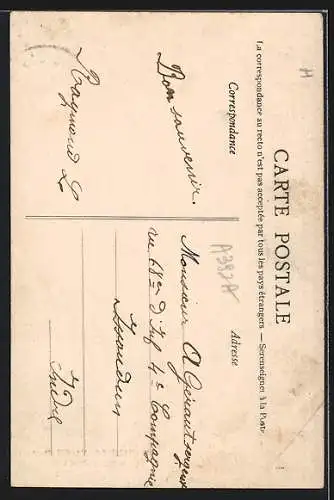 CARTE POSTALE
La correspondance au recto n'est pas acceptée par tous les pays étrangers — Serenseigner à la Poste.
Correspondance
Adresse
Bon souvenir
Raymond L
Monsieur A Gerant sergent
au 68e d'Inf 4e Compagnie
Issoudun
Indre
A382A
H